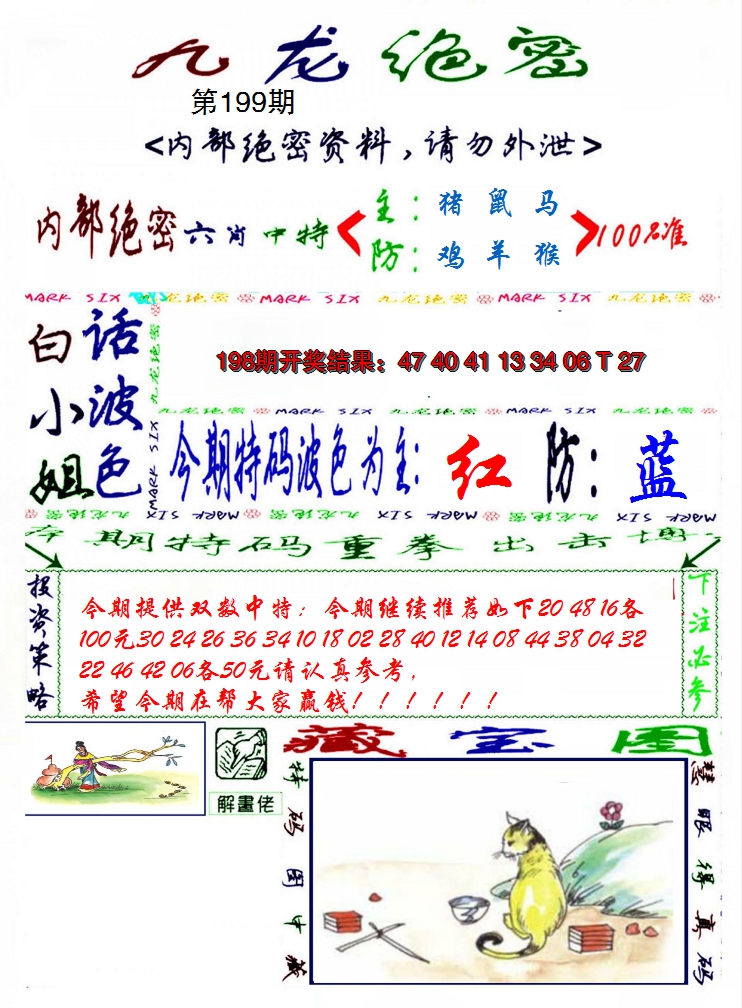 九龙绝密
第199期
<内部绝密资料,请勿外泄>
内部绝密六肖中特
主:猪鼠马
防:鸡羊猴
100%准
MARK SIX 九龙绝密 MARK SIX 九龙绝密 MARK SIX 九龙绝密
白小姐
话波色
九龙绝密 MARK SIX
198期开奖结果:47 40 41 13 34 06 T 27
九龙绝密 MARK SIX 九龙绝密 MARK SIX 九龙绝密
今期特码波色为主:红 防:蓝
MARK SIX 九龙绝密 MARK SIX 九龙绝密 MARK SIX 九龙绝密
本期特码重拳出击博
投资策略
今期提供双数中特;今期继续推荐如下20 48 16各
100元30 24 26 36 34 10 18 02 28 40 12 14 08 44 38 04 32
22 46 42 06各50元请认真参考,
希望今期在帮大家赢钱!!!!!!
下注必参
解畫佬
藏宝图
特码图中藏
慧眼得真码